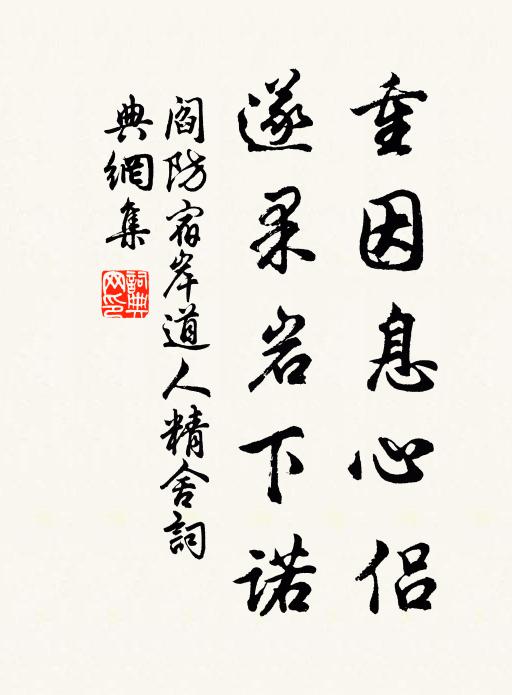 重因息心侣
遂果岩下诺
阎防宿岸道人精舍詞
典網集
詞典
网印